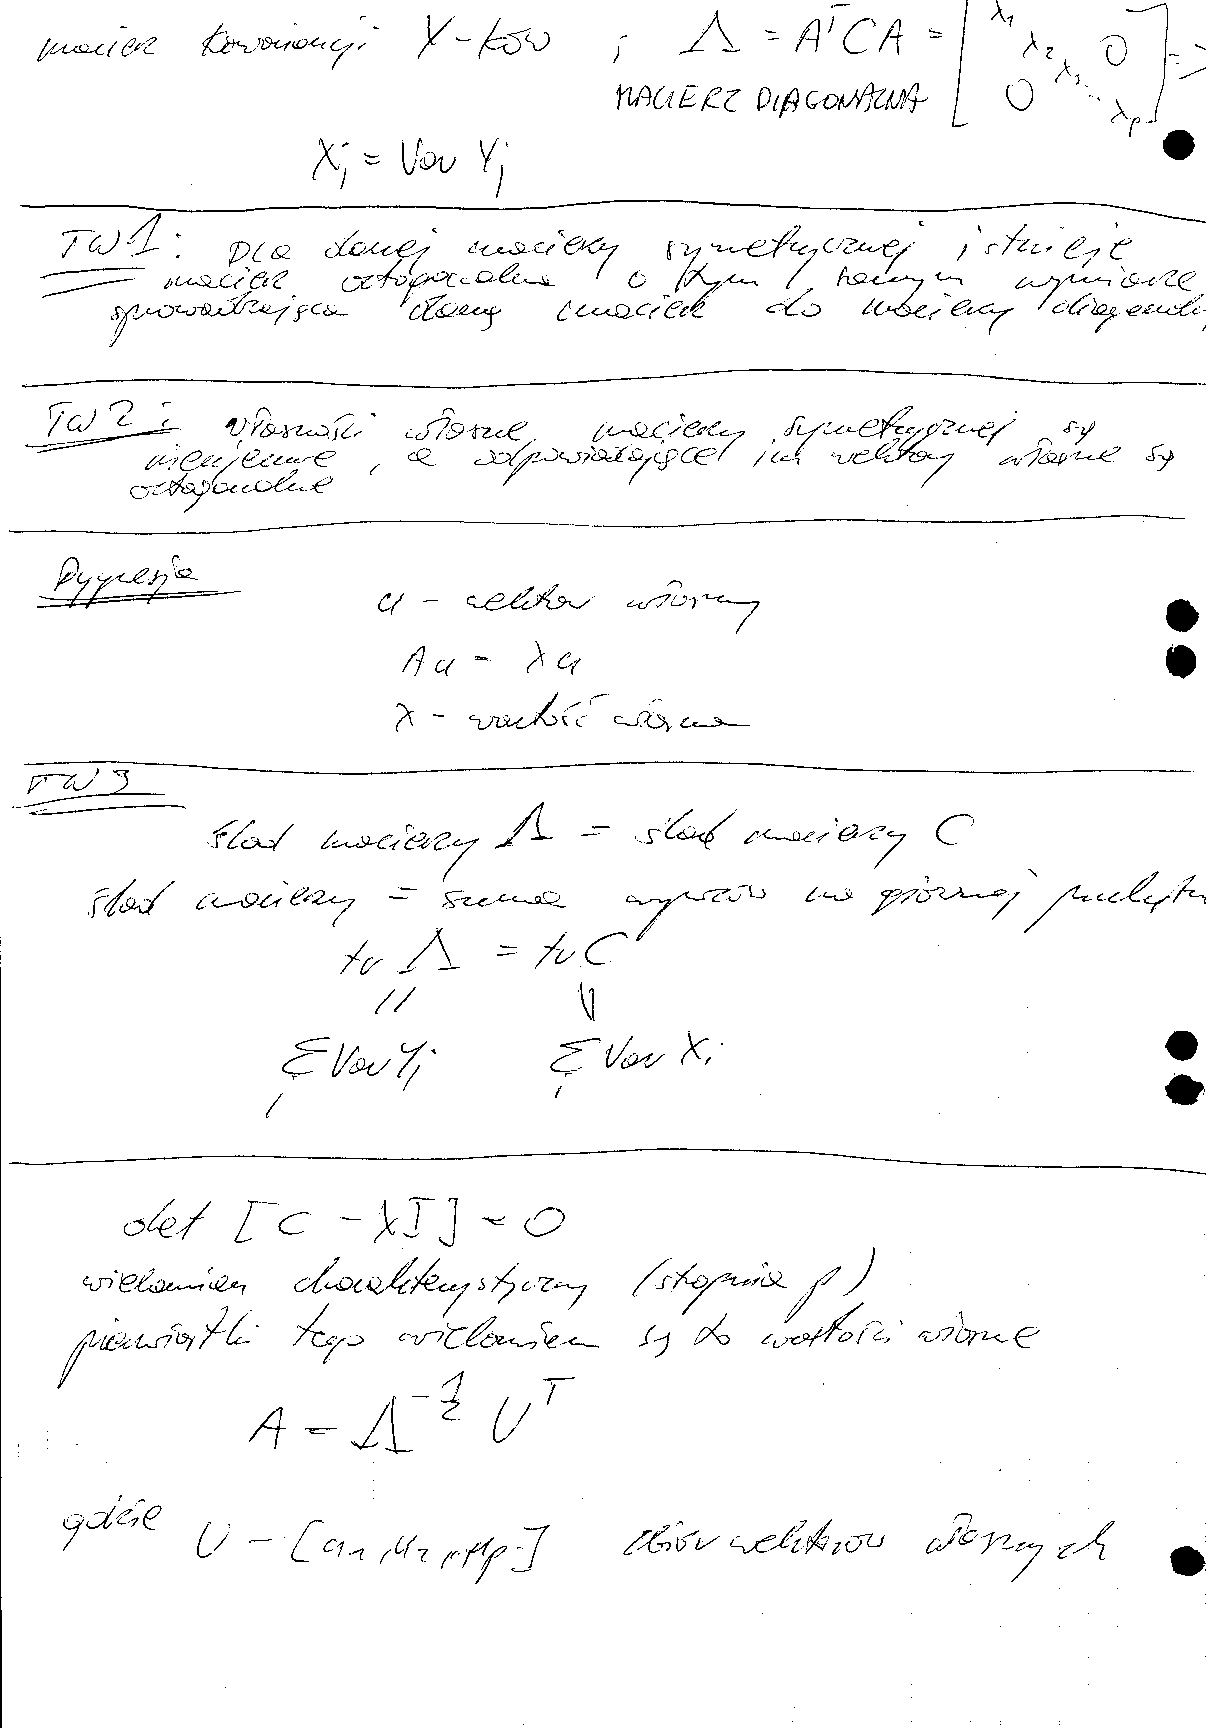 macierz kowariancji X-ków ; Λ = AᵀCA = [λ₁ λ₂ λ₃ ... λp 0 0] =>
MACIERZ DIAGONALNA
λj = Var Yj
TW1: Dla danej macierzy symetrycznej istnieje
macierz ortogonalna o tym samym wymiarze
sprowadzająca daną macierz do macierzy diagonal
TW2: własności własne macierzy symetrycznej są
nieujemne, a odpowiadające im wektory własne są
ortogonalne
Dygresja
u - wektor własny
Au = λu
λ - wartość własna
TW3
ślad macierzy Λ = ślad macierzy C
ślad macierzy = suma wyrazów na głównej
tr Λ = tr C
Σ Var Yj Σ Var Xi
i i
det [C - λI] = 0
wielomian charakterystyczny (stopnia p)
pierwiastki tego wielomianu są to wartości własne
A = Λ^-½ Uᵀ
gdzie U - [u₁, u₂, ..., up] zbiór wektorów własnych